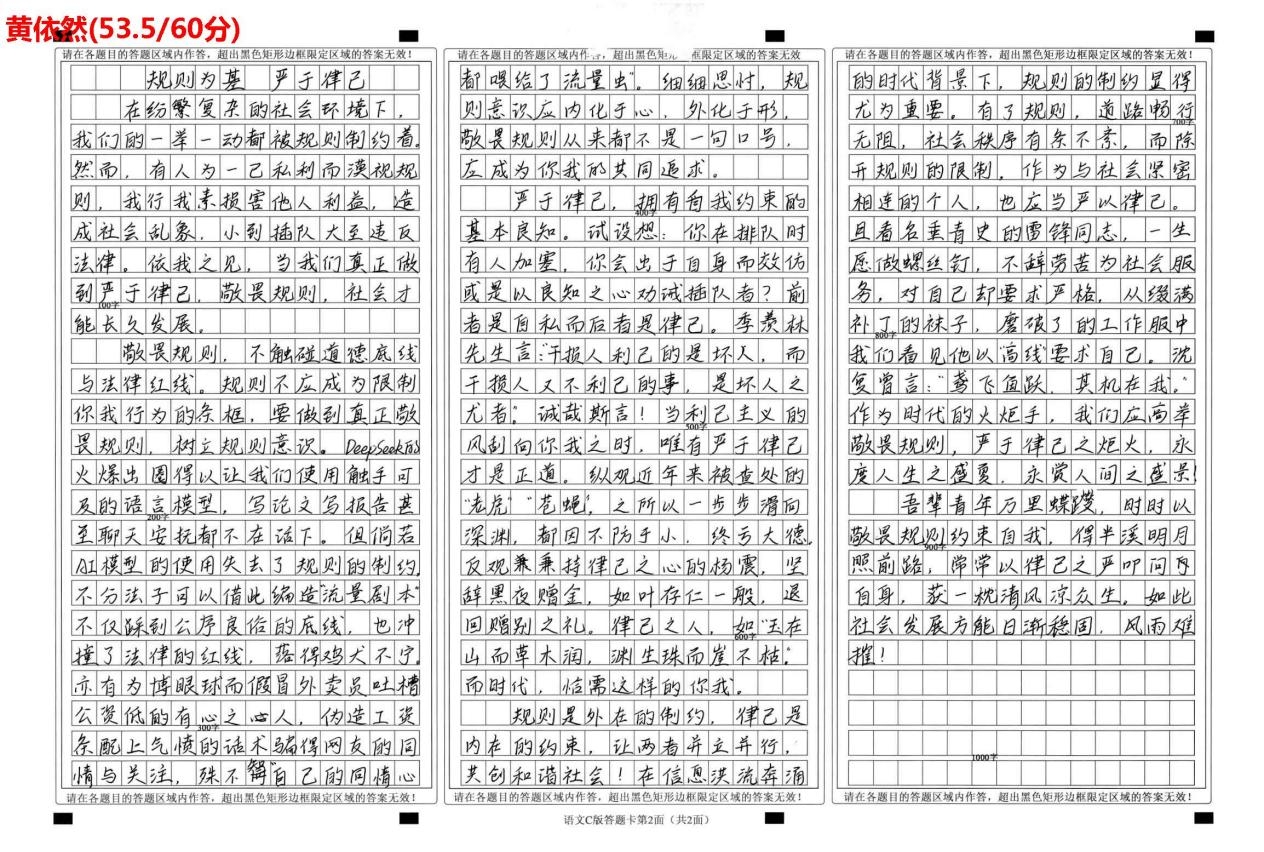 黄依然(53.5/60分)
请在各题目的答题区域内作答，超出黑色矩形边框限定区域的答案无效！
规则为基 严于律己
在纷繁复杂的社会环境下，
我们的一举一动都被规则制约着。
然而，有人为一己私利而漠视规
则，我行我素损害他人利益，造
成社会乱象，小到插队大至违反
法律。依我之见，当我们真正做
到严于律己，敬畏规则，社会才
100字
能长久发展。
敬畏规则，不触碰道德底线
与法律红线。规则不应成为限制
你我行为的条框，要做到真正敬
畏规则，树立规则意识。DeepSeek的
火爆出圈得以让我们使用触手可
及的语言模型，写论文写报告甚
200字
至聊天安抚都不在话下。但倘若
AI模型的使用失去了规则的制约，
不分法子可以借此编造"流量剧本"
不仅踩到公序良俗的底线，也冲
撞了法律的红线，落得鸡犬不宁。
亦有为博眼球而假冒外卖员吐槽
公资低的有心之心人，伪造工资
300字
条配上气愤的话术骗得网友的同
情与关注，殊不知"自己的同情心
请在各题目的答题区域内作答，超出黑色矩形边框限定区域的答案无效！
请在各题目的答题区域内作答，超出黑色矩形 框限定区域的答案无效！
都喂给了流量虫"。细细思忖，规
则意识应内化于心，外化于形，
敬畏规则从来都不是一句口号，
应成为你我的共同追求。
严于律己，拥有自我约束的
400字
基本良知。试设想：你在排队时
有人加塞，你会出于自身而效仿
或是以良知之心劝诫插队者？前
者是自私而后者是律己。季羡林
先生言："干损人利己的是坏人，而
干损人又不利己的事，是坏人之
尤者"。诚哉斯言！当利己主义的
500字
风刮向你我之时，唯有严于律己
才是正道。纵观近年来被查处的
"老虎""苍蝇"，之所以一步步滑向
深渊，都因不防于小，终亏大德。
反观兼秉持律己之心的杨震，坚
辞黑夜赠金，如叶存仁一般，退
回赠别之礼。律己之人，如"玉在
600字
山而草木润，渊生珠而崖不枯"。
而时代，恰需这样的你我。
规则是外在的制约，律己是
内在的约束，让两者并立并行，
共创和谐社会！在信息洪流奔涌
请在各题目的答题区域内作答，超出黑色矩形边框限定区域的答案无效！
语文C版答题卡第2面（共2面）
请在各题目的答题区域内作答，超出黑色矩形边框限定区域的答案无效！
的时代背景下，规则的制约显得
尤为重要。有了规则，道路畅行
700字
无阻，社会秩序有条不紊，而除
开规则的限制，作为与社会紧密
相连的个人，也应当严以律己。
且看名垂青史的雷锋同志，一生
愿做螺丝钉，不辞劳苦为社会服
务，对自己却要求严格，从缀满
补丁的袜子，磨破了的工作服中
800字
我们看见他以"高线"要求自己。沈
复曾言："鸢飞鱼跃，其机在我。"
作为时代的火炬手，我们应高举
敬畏规则，严于律己之炬火，永
度人生之盛夏，永赏人间之盛景！
吾辈青年万里蹀躞，时时以
敬畏规则约束自我，得半溪明月
900字
照前路，常常以律己之严叩问
自身，获一枕清风凉众生。如此
社会发展方能日渐稳固，风雨难
摧！
1000字
请在各题目的答题区域内作答，超出黑色矩形边框限定区域的答案无效！